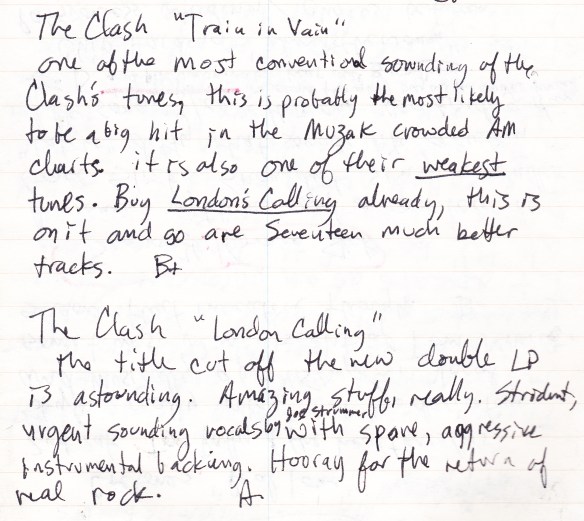 The Clash "Train in Vain"
one of the most conventional sounding of the
Clash's tunes, this is probably the most likely
to be a big hit in the Muzak crowded AM
charts. it is also one of their weakest
tunes. Buy London's Calling already, this is
on it and so are Seventeen much better
tracks. B+
The Clash "London Calling"
the title cut off the new double LP
is astounding. Amazing stuff, really. Strident,
urgent sounding vocals by Joe Strummer with spare, aggressive
instrumental backing. Hooray for the return of
real rock. A